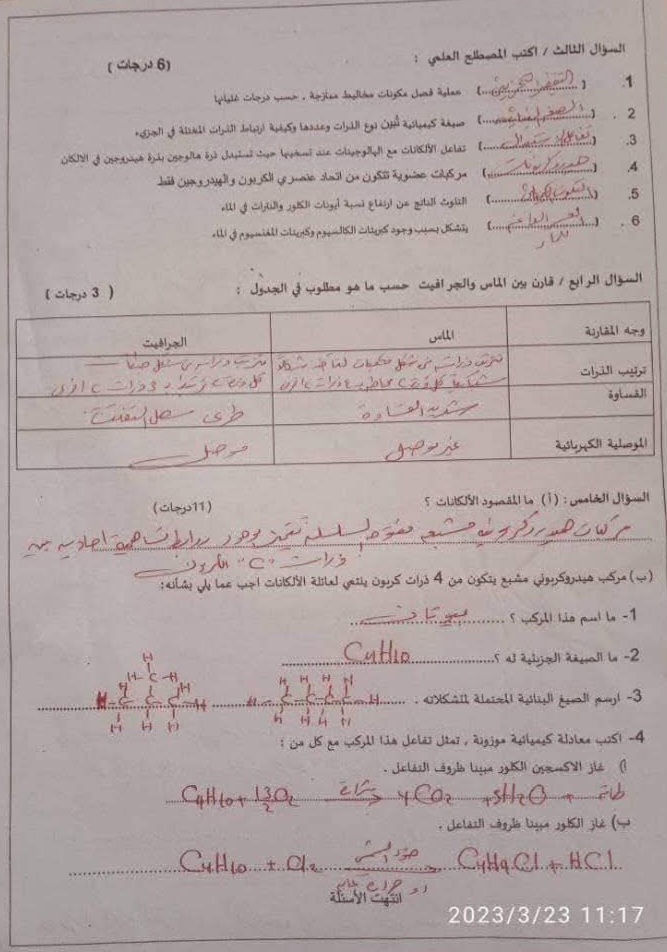 السؤال الثالث / اكتب المصطلح العلمي : (6 درجات)
1. (التقطير التجزيئي) عملية فصل مكونات مخاليط ممتزجة ، حسب درجات غليانها
2. (الصيغة البنائية) صيغة كيميائية تبين نوع الذرات وعددها وكيفية ارتباط الذرات المختلفة في الجزيء
3. (تفاعل الاستبدال) تفاعل الألكانات مع الهالوجينات عند تسخينها حيث تستبدل ذرة هالوجين بذرة هيدروجين في الالكان
4. (هيدروكربونات) مركبات عضوية تتكون من اتحاد عنصري الكربون والهيدروجين فقط
5. (التلوث) التلوث الناتج عن ارتفاع نسبة أيونات الكلور والنترات في الماء
6. (العسر الدائم للماء) يتشكل بسبب وجود كبريتات الكالسيوم وكبريتات المغنسيوم في الماء
السؤال الرابع / قارن بين الماس والجرافيت حسب ما هو مطلوب في الجدول : ( 3 درجات )
وجه المقارنة الماس الجرافيت
ترتيب الذرات
القساوة شديد القساوة طري سهل التفتت
الموصلية الكهربائية غير موصل موصل
السؤال الخامس: (أ) ما المقصود الألكانات ؟ (11درجات)
مركبات هيدروكربونية مشبعة مفتوحة السلسلة تتميز بوجود روابط تساهمية احادية بين
ذرات "C" الكربون
(ب) مركب هيدروكربوني مشبع يتكون من 4 ذرات كربون ينتمي لعائلة الألكانات اجب عما يلي بشأنه:
1- ما اسم هذا المركب ؟ بيوتان
2- ما الصيغة الجزيئية له ؟ C4H10
3- ارسم الصيغ البنائية المحتملة لمتشكلاته .
4- اكتب معادلة كيميائية موزونة ، تمثل تفاعل هذا المركب مع كل من :
أ) غاز الاكسجين الكلور مبينا ظروف التفاعل .
C4H10 + 13/2 O2 شرارة 4CO2 + 5H2O + طاقة
ب) غاز الكلور مبينا ظروف التفاعل .
C4H10 + Cl2 ضوء الشمس C4H9Cl + HCl
او حرارة عالية
انتهت الأسئلة
2023/3/23 11:17